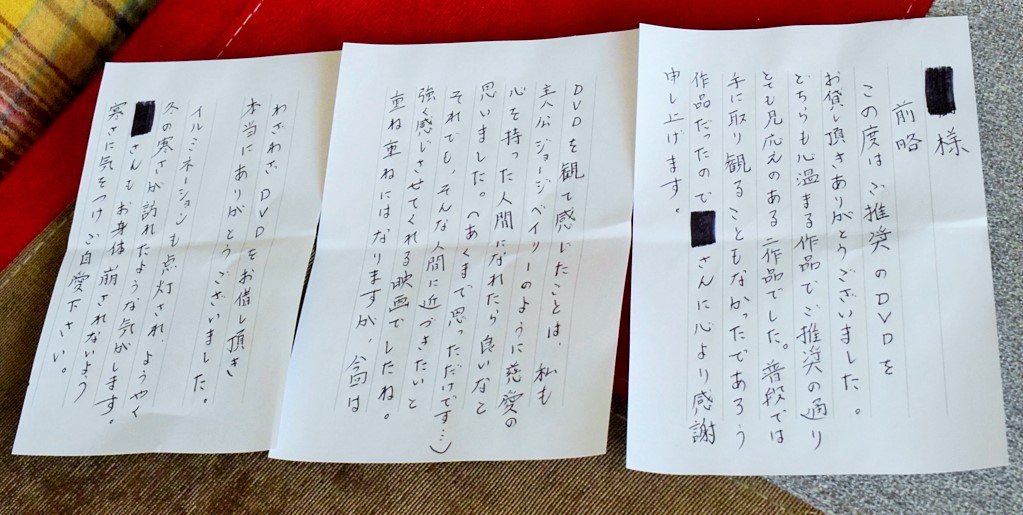 様
前略
この度はご推奨のDVDを
お貸し頂きありがとうございました。
どちらも心温まる作品でご推奨の通り
とても見応えのある二作品でした。普段では
手に取り観ることもなかったであろう
作品だったので
さんに心より感謝
申し上げます。
DVDを観て感じたことは、私も
主人公ジョージベイリーのように慈愛の
心を持った人間になれたら良いなと
思いました。(あくまで思っただけです…)
それでも、そんな人間に近づきたいと
強く感じさせてくれる映画でしたね。
重ね重ねにはなりますが、今回は
わざわざ、DVDをお借し頂き
本当にありがとうございました。
イルミネーションも点灯され、ようやく
冬の寒さが訪れたような気がします。
さんもお身体崩されないよう
寒さに気をつけご自愛下さい。